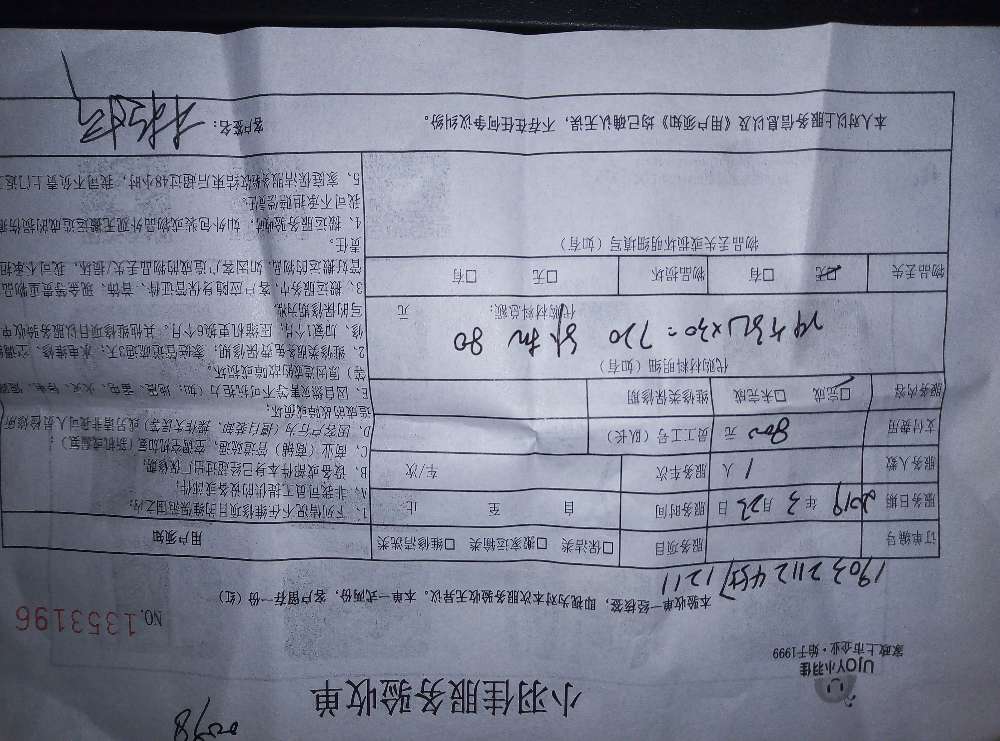 小羽佳服务验收单
UJOY小羽佳
家政上市企业·始于1999
NO.1353196
本验收单一经核签，即视为对本次服务验收无异议。本单一式两份，客户存留一份（红）
订单编号
服务项目 □保洁类 □搬家运输类 □维修清洗类
服务日期 2019 年 3 月 23 日 服务时间 自 至 止
服务人数 1 人 服务车次 车/次
支付费用 800 元 员工工号（队长）
服务内容 □完成 □未完成 维修类保修期
代购材料明细（如有）
x30=720 80
代购材料总额： 元
物品丢失 □无 □有 物品损坏 □无 □有
物品丢失或损坏明细填写（如有）
用户须知
1、下列情况不在维修项目的维保范围之内：
A、非我司员工提供的设备或部件；
B、设备或部件本身已经超过出厂保修期；
C、商业（商铺）管道疏通、空调空机加氟（新机或旧氟）；
D、因客户行为（擅自拆卸、操作失误等）或另请非我司人员检修所
造成的故障或损坏；
E、因自然灾害等不可抗拒力（如：地震、雷电、水灾、
等）原因造成的故障或损坏。
2、维修类服务免费保修期：家庭管道疏通3天；水电维修、空调
修、加氟1个月；压缩机更换6个月。其他维修项目以服务验收单
写的保修期为准。
3、搬运服务中，客户应随身保管证件、首饰、现金等贵重物品
管好搬运的物品，如因客户造成的物品丢失/损坏，我司不承担
责任。
4、搬运服务验收时，如外包装或物品外观无搬运造成的损伤痕
我司不承担赔偿责任。
5、家庭保洁服务验收结束后超过48小时，我司不负责上门返工
本人对以上服务信息以及《用户须知》均已确认无误，不存在任何争议纠纷。
客户签名：